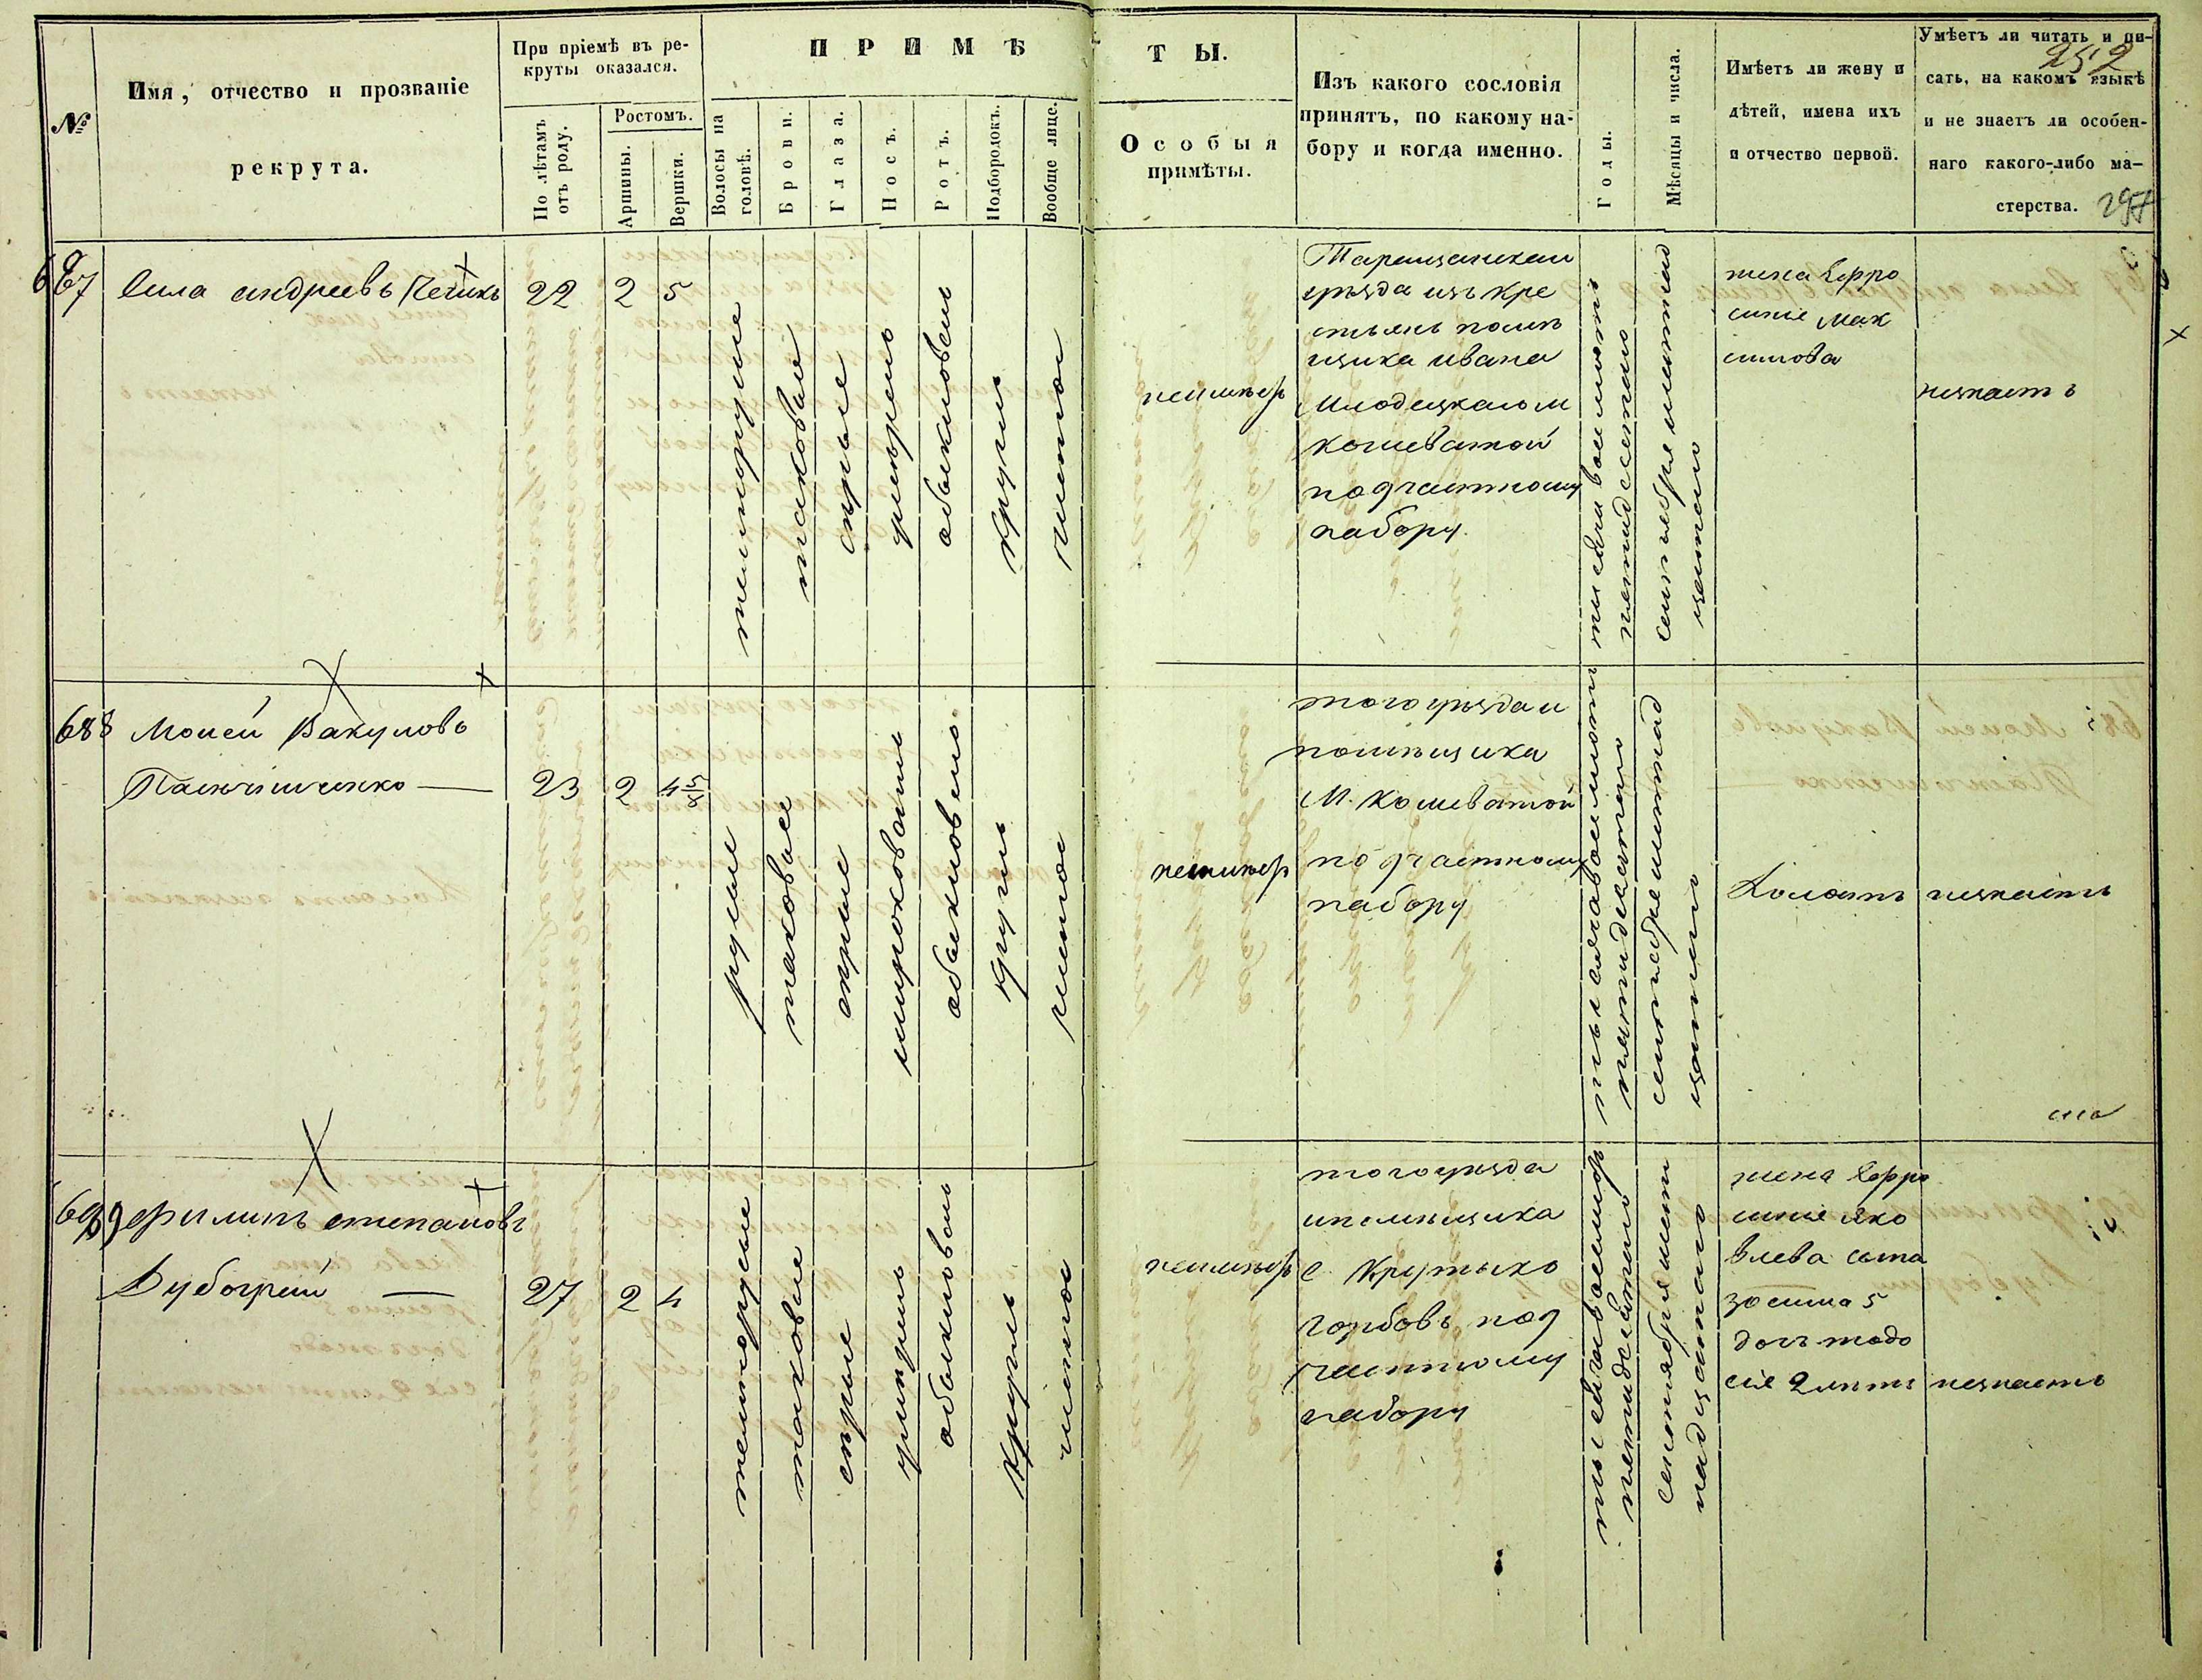 №
Имя, отчество и прозваніе
рекрута.
При пріемѣ въ ре-
круты оказался.
По лѣтамъ
отъ роду.
Ростомъ.
Аршины.
Вершки.
ПРИМѢ
Волосы на
головѣ.
Брови.
Глаза.
Носъ.
Ротъ.
Подбородокъ.
Вообще лице.
ТЫ.
Особыя
примѣты.
Изъ какого сословія
принятъ, по какому на-
бору и когда именно.
Годы.
Мѣсяцы и числа.
Имѣетъ ли жену и
дѣтей, имена ихъ
и отчество первой.
Умѣетъ ли читать и пи-
сать, на какомъ языкѣ
и не знаетъ ли особен-
наго какого-либо ма-
стерства.
252
297
687
Сила андреевъ
22
2
5
темнорусые
таковые
сѣрые
умѣрено
обыкновено
круглъ
чистое
неимѣер
Таращанскаго
уѣзда изъ кре
стьянъ помѣ
щика ивана
Млодецкаго м
кошеватой
подчастному
набору.
тысяча восемьсотъ
пятидесятаго
сентября
жена Ефро
синіе Мак
симова
незнаетъ
688
Мокей Вакуловъ
23
2
4 5/8
русые
таковые
сѣрые
широковатъ
обыкновено
круглъ
чистое
неимѣер
того уѣзда и
помѣщика
М. кошеватой
подчастному
набору
тысяча восемьсотъ
пятидесятаго
сентября
Холостъ
незнаетъ
689
филипъ степановъ
27
2
4
темнорусые
таковые
сѣрые
умѣрено
обыкновено
круглъ
чистое
неимѣер
того уѣзда
ипомѣщика
с. Круты хо
горбовъ под
частному
набору
пятидесятаго
сентября
надцатаго
жена Ефро
синіе Яко
влева сына
зосима 5
доч тодо
сіе 2 лѣтъ
незнаетъ